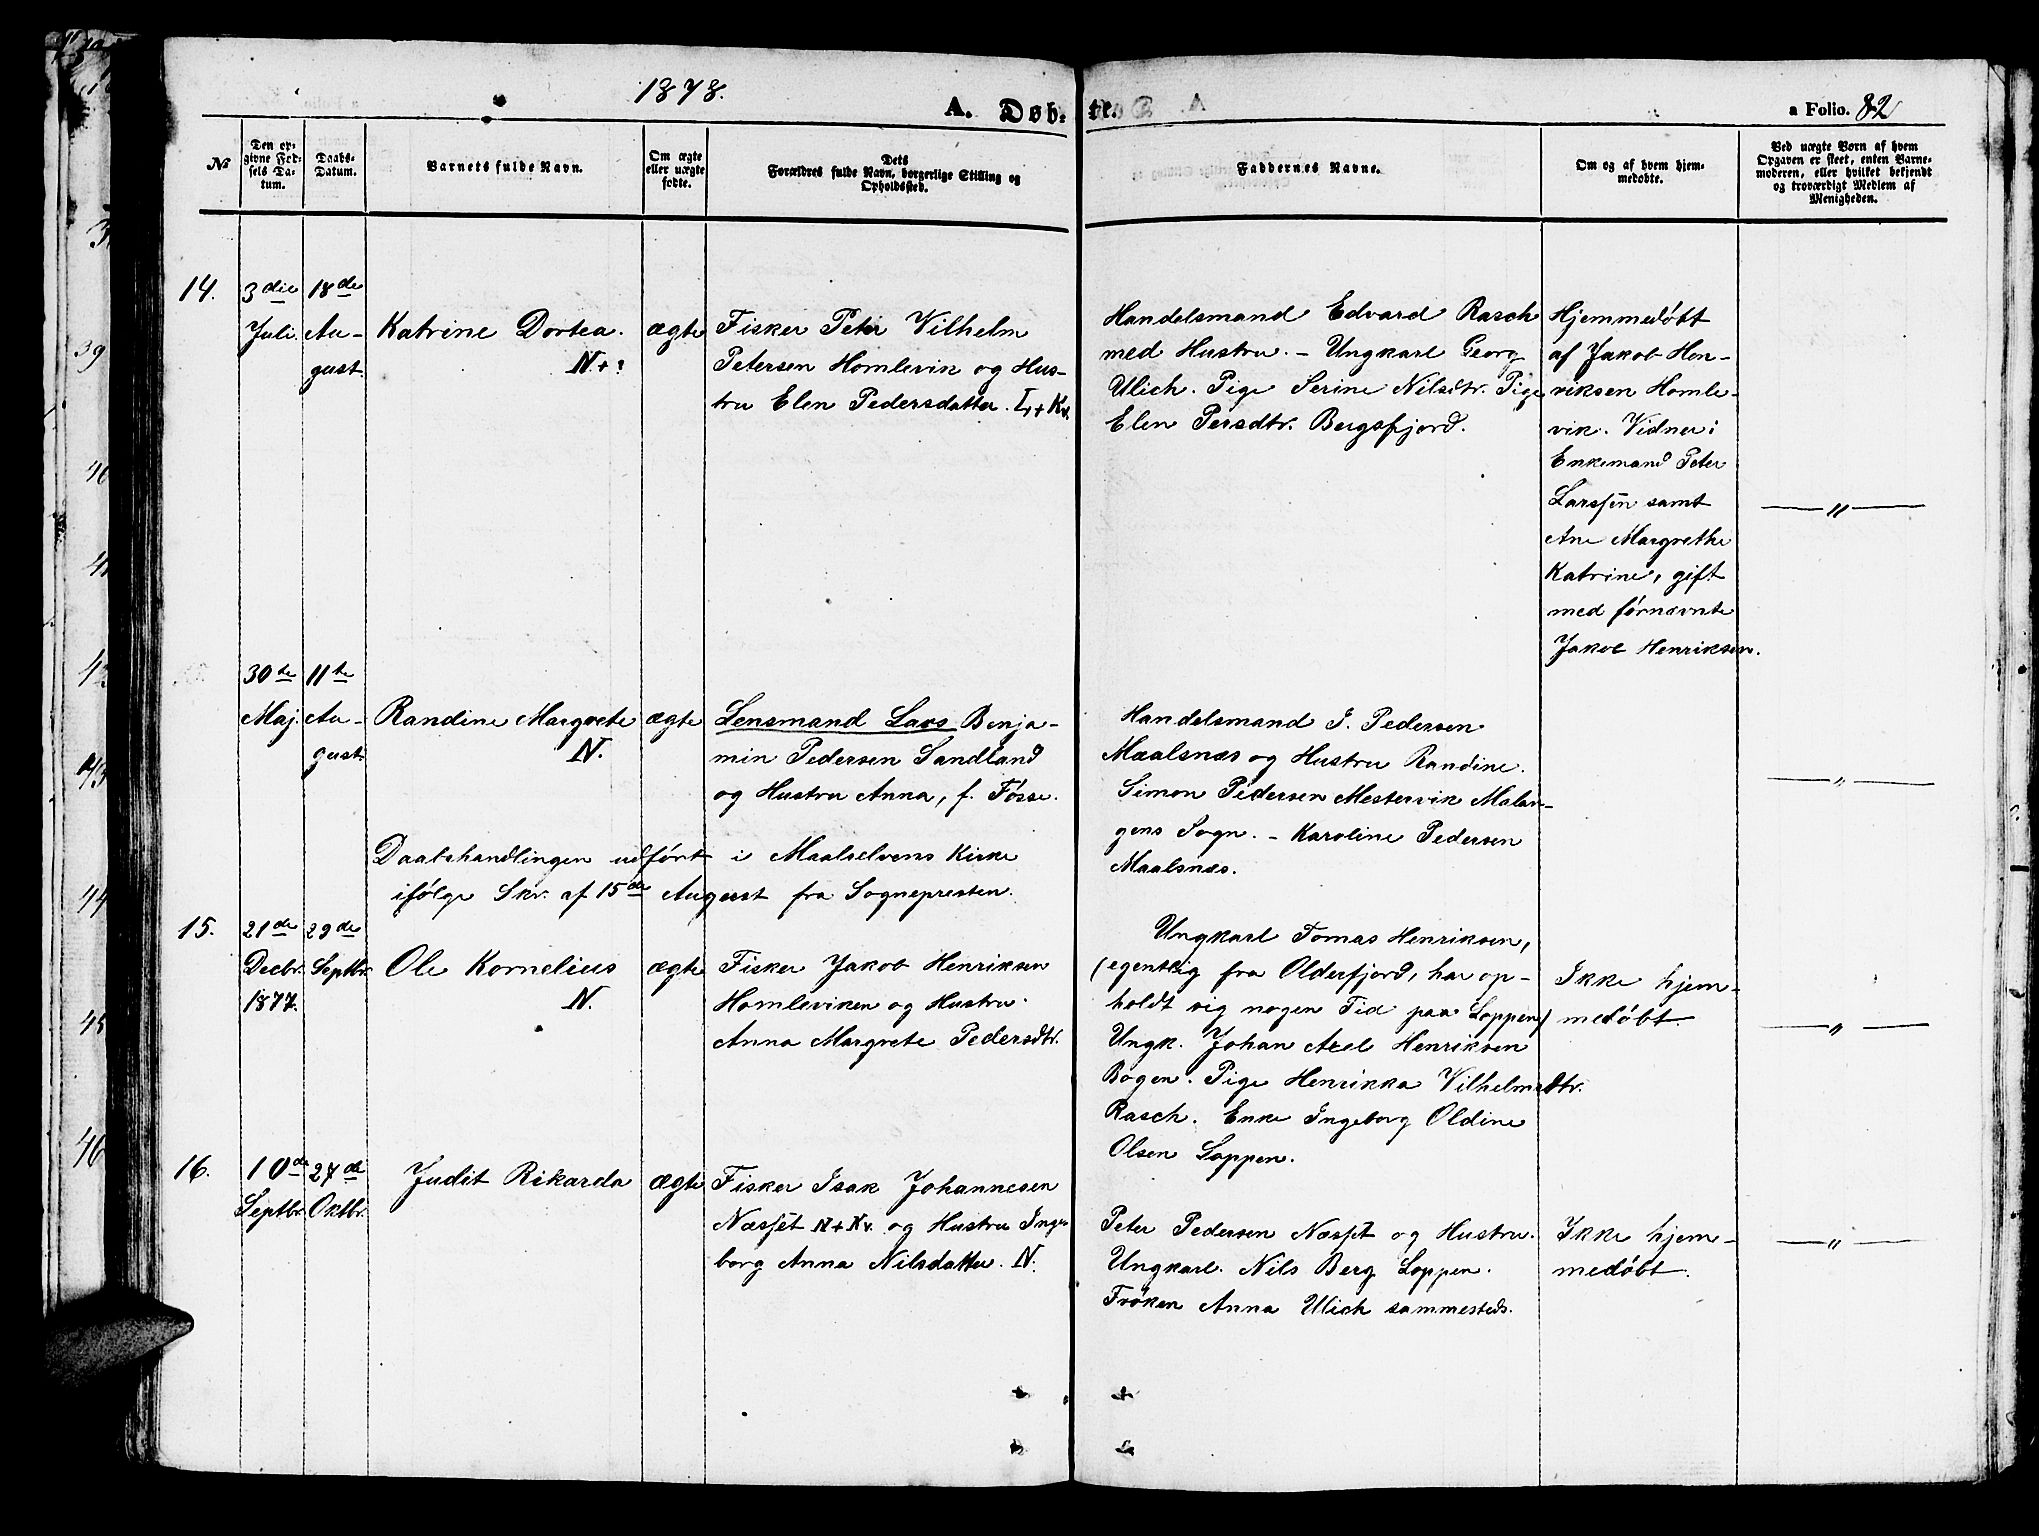 1878.
A. Døb-
te.
a Folio. 82
No
Den op-
givne Fød-
sels Da-
tum.
Daabs-
Datum.
Barnets fulde Navn.
Om ægte
eller uægte
fødte.
Dets
Forældres fulde Navn, borgerlige Stilling og
Opholdssted.
Faddernes Navne.
Om og af hvem hjem-
medøbte.
Ved uægte Børn af hvem
Opgaven er skeet, enten Barne-
moderen, eller hvilket bekjendt
og troværdigt Medlem af
Menigheden.
14.
3die
Juli.
18de
Au-
gust.
Katrine Dortea.
N+?
ægte
Fisker Peter Vilhelm
Petersen Homlevik og Hus-
tru Elen Pedersdatter. L+Kv.
Handelsmand Edvard Rasch
med Hustru. - Ungkarl Georg
Ulich. Pige Serine Nilsdtr. Pige
Elen Persdtr. Bergsfjord.
Hjemmedøbt
af Jakob Hen-
riksen Homle-
vik. Vidner:
Enkemand Peter
Larssen samt
Ane Margrethe
Katrine, gift
med førnævnte
Jakob Henriksen.
— " —
30te
Maj.
11te
Au-
gust.
Randine Margrete
N.
ægte
Lensmand Lars Benja-
min Pedersen Sandland
og Hustru Anna, f. Fosse.
Daabshandlingen udført i Maalselvens Kirke
ifølge Skr. af 15de August fra Sognepresten.
Handelsmand J. Pedersen
Maalsnæs og Hustru Randine.
Simon Pedersen Mestervik Malan-
gens Sogn. - Karoline Pedersen
Maalsnæs.
— " —
15.
21de
Decbr.
1877.
29de
Septbr.
Ole Kornelius
N.
ægte
Fisker Jakob Henriksen
Homleviken og Hustru
Anna Margrete Pedersdtr.
Ungkarl Tomas Henriksen,
(egentlig fra Olderfjord, har op-
holdt sig nogen Tid paa Loppen)
Ungk. Johan Axel Henriksen
Bogen. Pige Henrikka Vilhelmsdtr.
Rasch. Enke Ingeborg Oldine
Olsen Loppen.
Ikke hjem-
medøbt.
— " —
16.
10de
Septbr.
27de
Oktbr.
Judit Rikarda
ægte
Fisker Isak Johannesen
Næsset N+Kv. og Hustru Inge-
borg Anna Nilsdatter. N.
Peter Pedersen Næsset og Hustru.
Ungkarl. Nils Berg Loppen.
Frøken Anna Ulich sammesteds.
Ikke hjem-
medøbt.
— " —
39
40
41
43
44
45
46